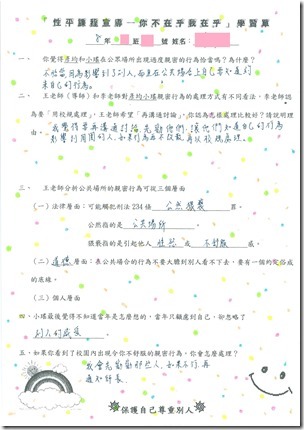 性平課程宣導--你不在乎我在乎」學習單
8年 班 號 姓名：
一、你覺得彥均和小瑋在公眾場所出現過度親密的行為恰當嗎？為什麼？
不恰當，因為影響到了別人，而且在公共場合上自己要知道約束自己的行為。
二、王老師（導師）和李老師對彥均小瑋親密的行為的處理方式有不同看法，李老師認
為要「用校規處理」，王老師想要「溝通討論」，你認為怎樣處理比較好？請說明理
由。我覺得要再溝通討論，先勸他們，讓他們知道他們的行為
影響到周圍的人，如果行為再不改善，再以校規處理。
三、王老師分析公共場所的親密行為可說三個層面
（一）法律層面：可能觸犯刑法 234 條 公然猥褻 罪。
公然指的是 公共場所 。
猥褻指的是引起他人 性慾 或 不舒服 感。
（二）道德層面：在公共場合的行為不要太離到別人看不下去，要有一個約定俗成
的底線。
（三）個人層面
四、小瑋最後覺得不知道當年是怎麼想的，當年只顧慮到自己，卻忽略了
別人的感受 。
五、如果你看到了校園內出現令你不舒服的親密行為，你會怎麼處理？
我會先勸勸那些人，如果不行再
通知師長。
保護自己尊重別人